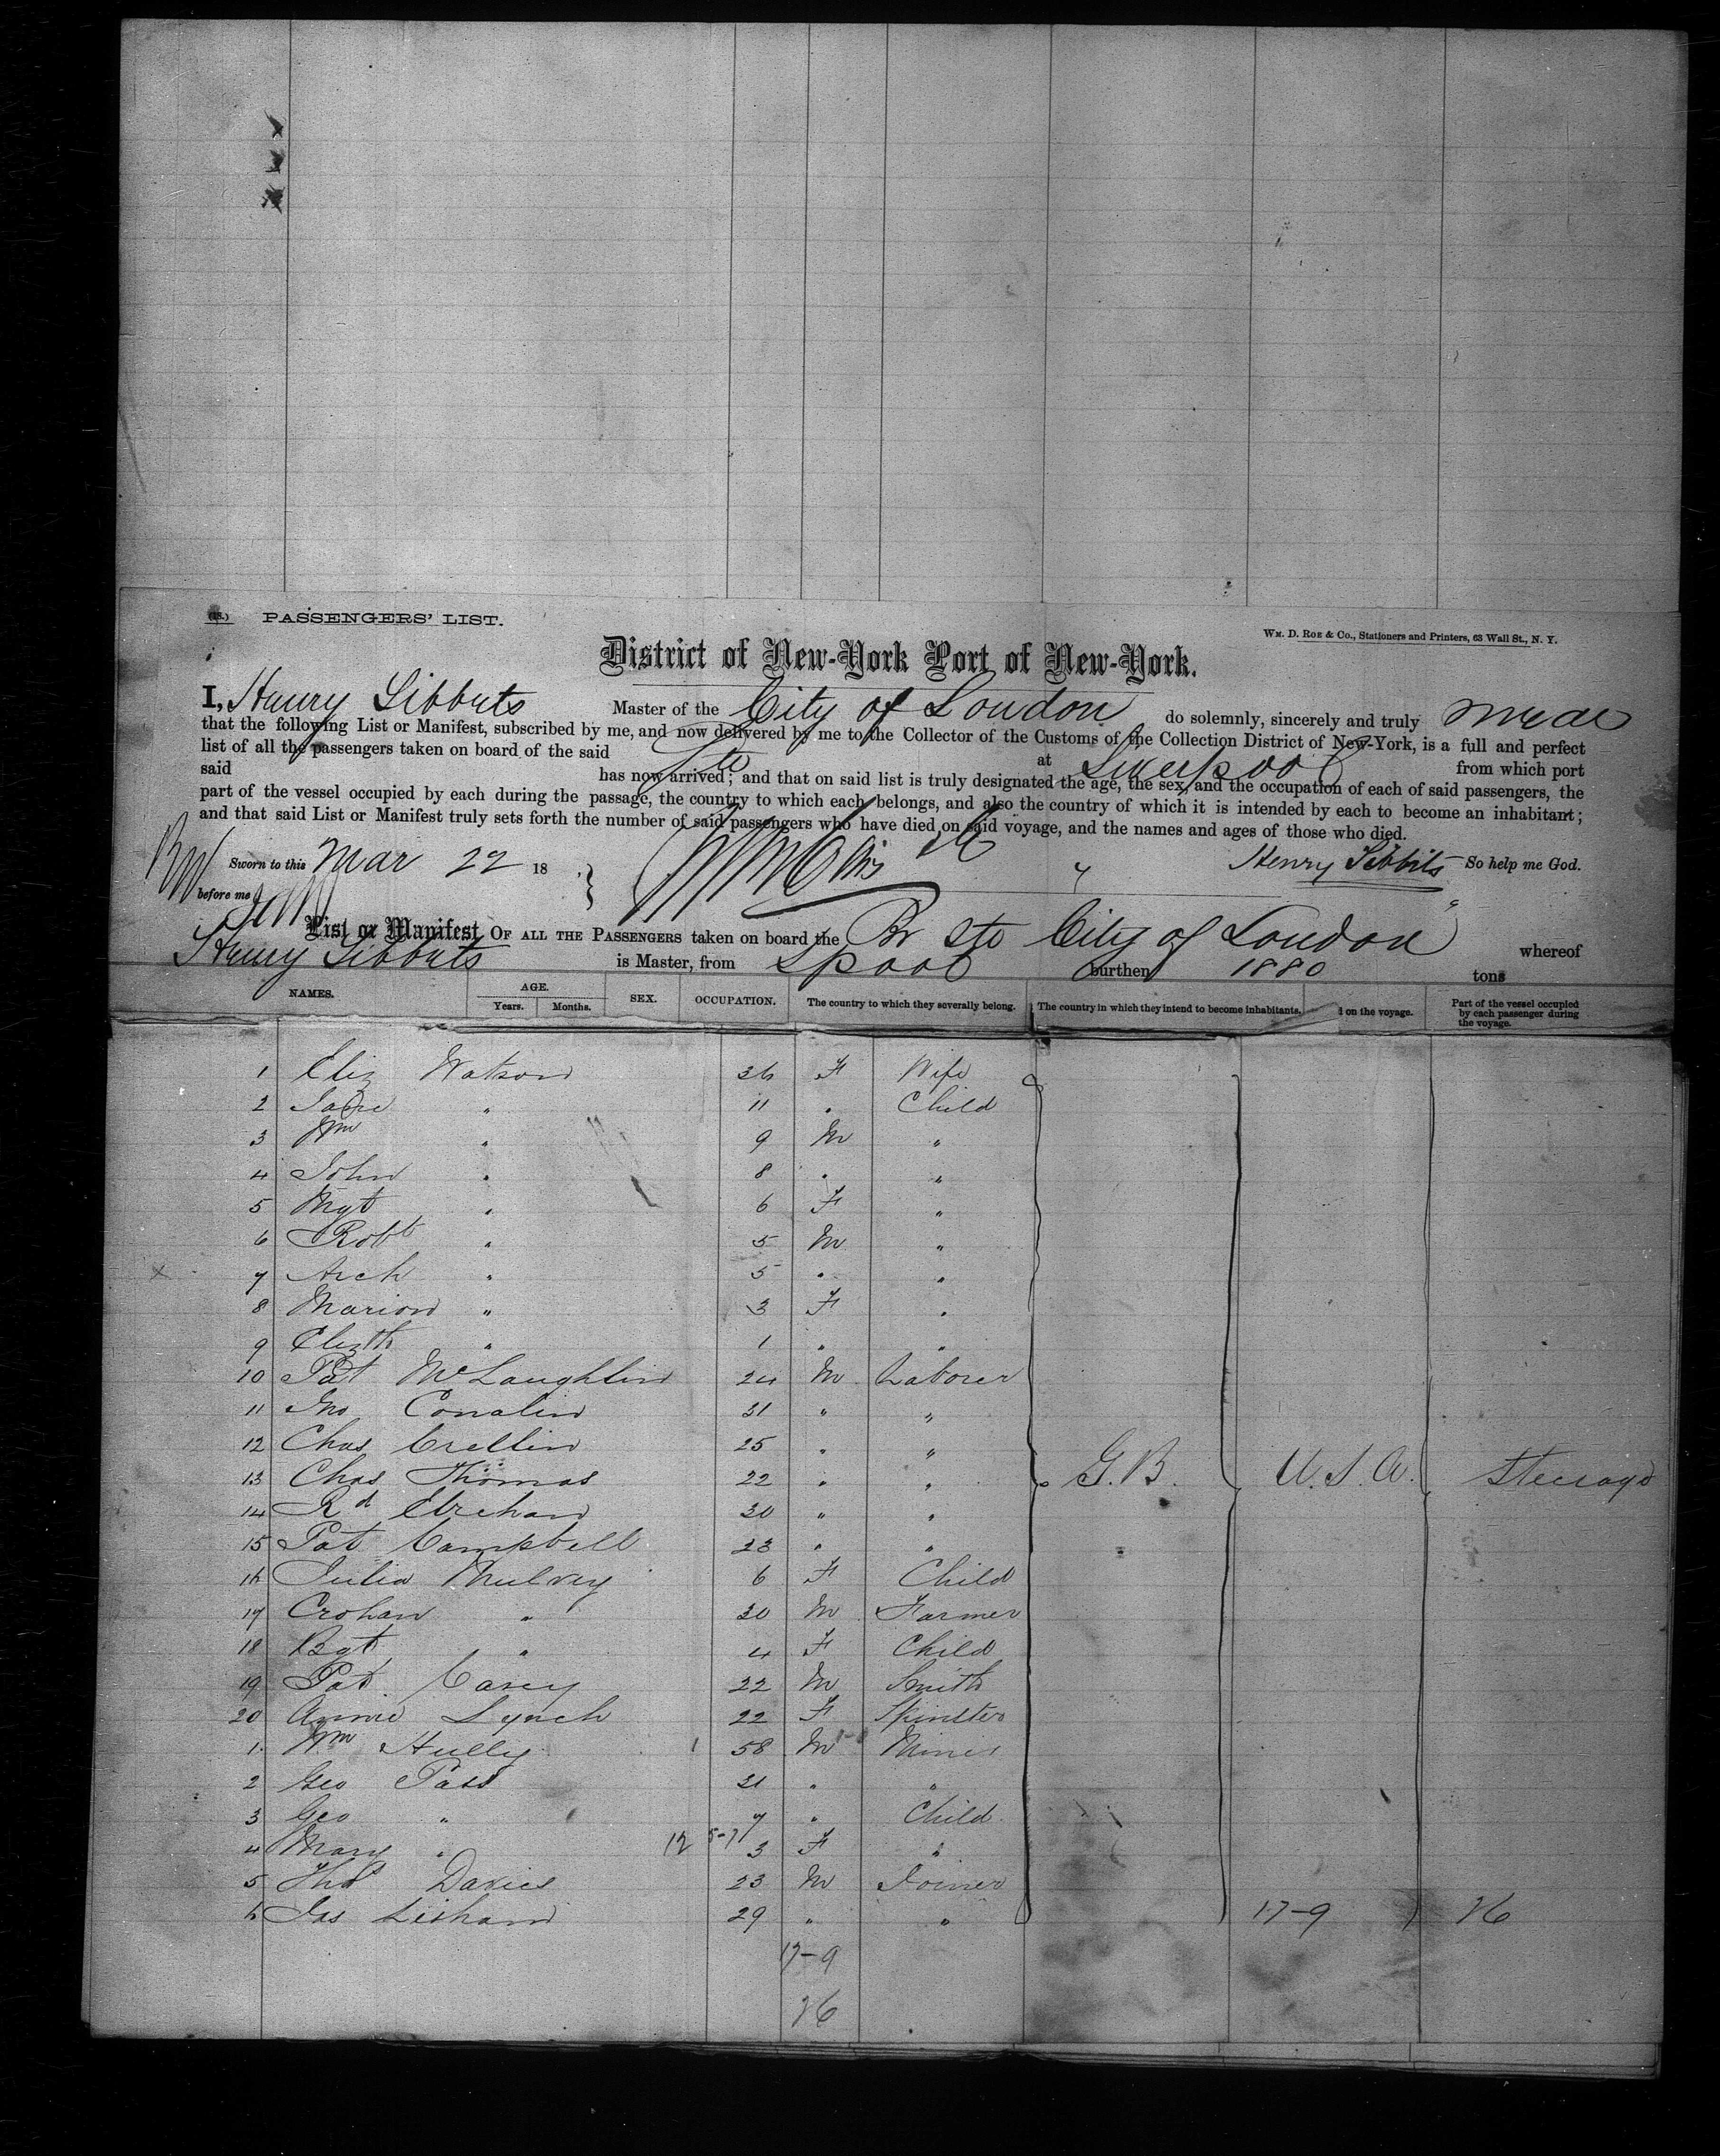 (18.) PASSENGERS' LIST.
WM. D. ROE & CO., Stationers and Printers, 63 Wall St., N. Y.
District of New-York Port of New-York.
I, Henry Tibbits Master of the City of London do solemnly, sincerely and truly swear
that the following List or Manifest, subscribed by me, and now delivered by me to the Collector of the Customs of the Collection District of New-York, is a full and perfect
list of all the passengers taken on board of the said Str at Liverpool from which port
said has now arrived; and that on said list is truly designated the age, the sex, and the occupation of each of said passengers, the
part of the vessel occupied by each during the passage, the country to which each belongs, and also the country of which it is intended by each to become an inhabitant;
and that said List or Manifest truly sets forth the number of said passengers who have died on said voyage, and the names and ages of those who died.
Sworn to this Mar 22 18 Henry Tibbits So help me God.
before me
List or Manifest OF ALL THE PASSENGERS taken on board the Br Str City of London whereof
Henry Tibbits is Master, from Lpool burthen 1880 tons
NAMES. AGE. Years. Months. SEX. OCCUPATION. The country to which they severally belong. The country in which they intend to become inhabitants. d on the voyage. Part of the vessel occupied by each passenger during the voyage.
1 Eliz Watson 36 F Wife
2 Jane " 11 " Child
3 Wm " 9 M "
4 John " 8 " "
5 Mgt " 6 F "
6 Robt " 5 M "
x 7 Arch " 5 " "
8 Marion " 3 F "
9 Elizth " 1 " "
10 Pat McLaughlin 24 M Laborer
11 Jno Conalin 31 " "
12 Chas Crellin 25 " "
13 Chas Thomas 22 " " G.B. U.S.A. Steerage
14 Rd 30 " "
15 Pat Campbell 23 " "
16 Julia Mulvey 6 F Child
17 Crohan " 30 M Farmer
18 Bgt " 4 F Child
19 Pat Casey 22 M Smith
20 Annie Lynch 22 F Spinster
1 Wm Hully 58 M Miner
2 Geo Pass 31 " "
3 Geo " 7 " Child
4 Mary " 12 5-7 3 F "
5 Thos Davies 23 M Joiner
6 Jas Lisham 29 " " 17-9 26
17-9
26